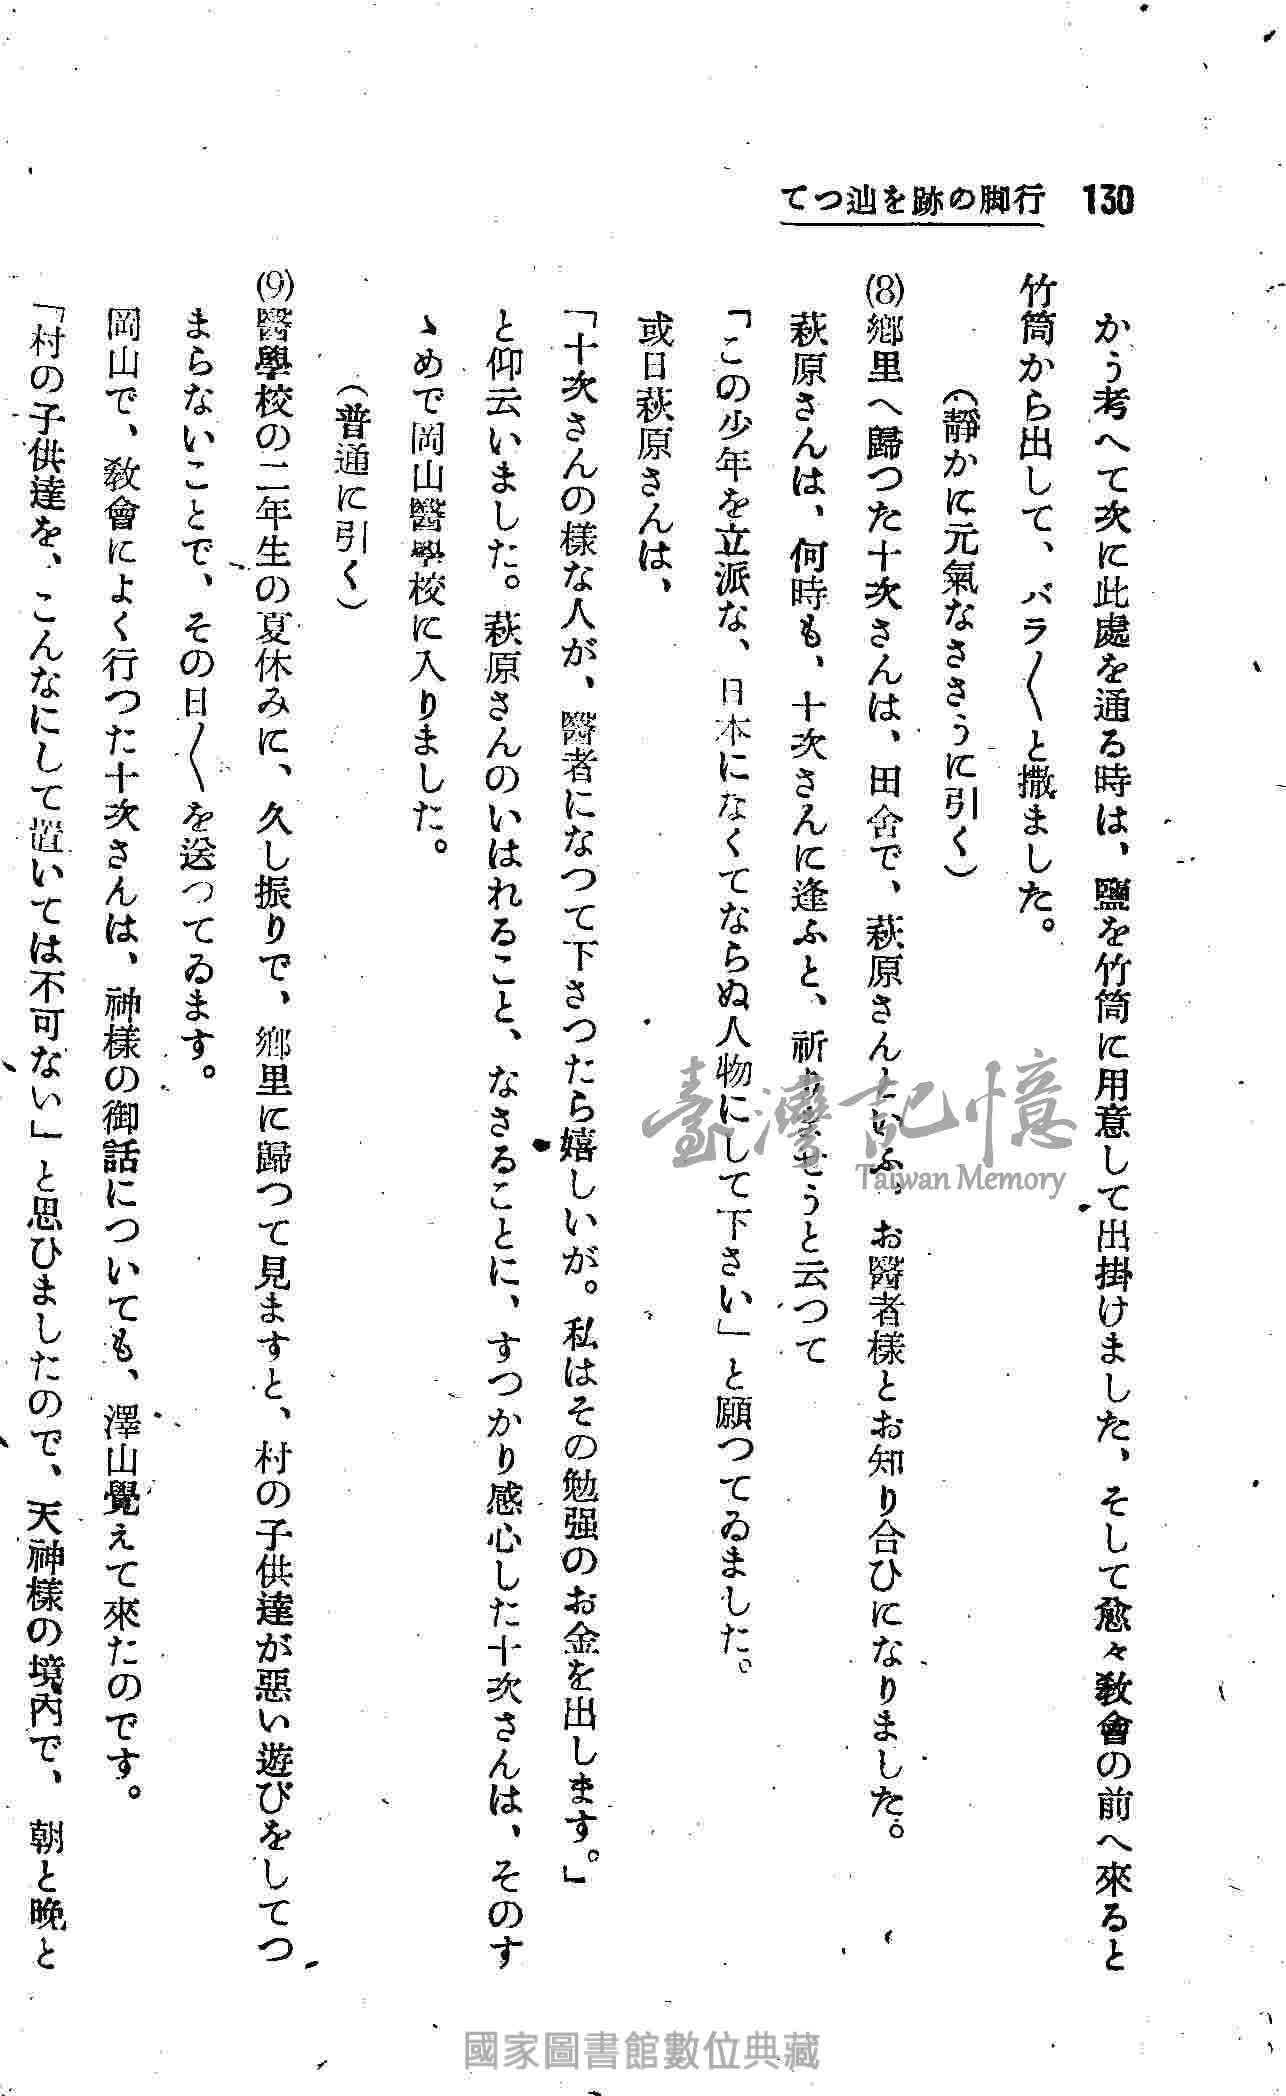 130 行脚の跡を辿つて
かう考へて次に此處を通る時は、鹽を竹筒に用意して出掛けました、そして愈々敎會の前へ來ると
竹筒から出して、バラ〳〵と撒ました。
(靜かに元氣なささうに引く)
(8)鄕里へ歸つた十次さんは、田舍で、萩原さんといふ、お醫者樣とお知り合ひになりました。
萩原さんは、何時も、十次さんに逢ふと、祈りませうと云つて
「この少年を立派な、日本になくてならぬ人物にして下さい」と願つてゐました。
或日萩原さんは、
「十次さんの樣な人が、醫者になつて下さつたら嬉しいが。私はその勉强のお金を出します。」
と仰云いました。萩原さんのいはれること、なさることに、すつかり感心した十次さんは、そのす
ゝめで岡山醫學校に入りました。
(普通に引く)
(9)醫學校の二年生の夏休みに、久し振りで、鄕里に歸つて見ますと、村の子供達が惡い遊びをしてつ
まらないことで、その日〳〵を送つてゐます。
岡山で、敎會によく行つた十次さんは、神樣の御話についても、澤山覺えて來たのです。
「村の子供達を、こんなにして置いては不可ない」と思ひましたので、天神樣の境內で、朝と晚と
臺灣記憶
Taiwan Memory
國家圖書館數位典藏